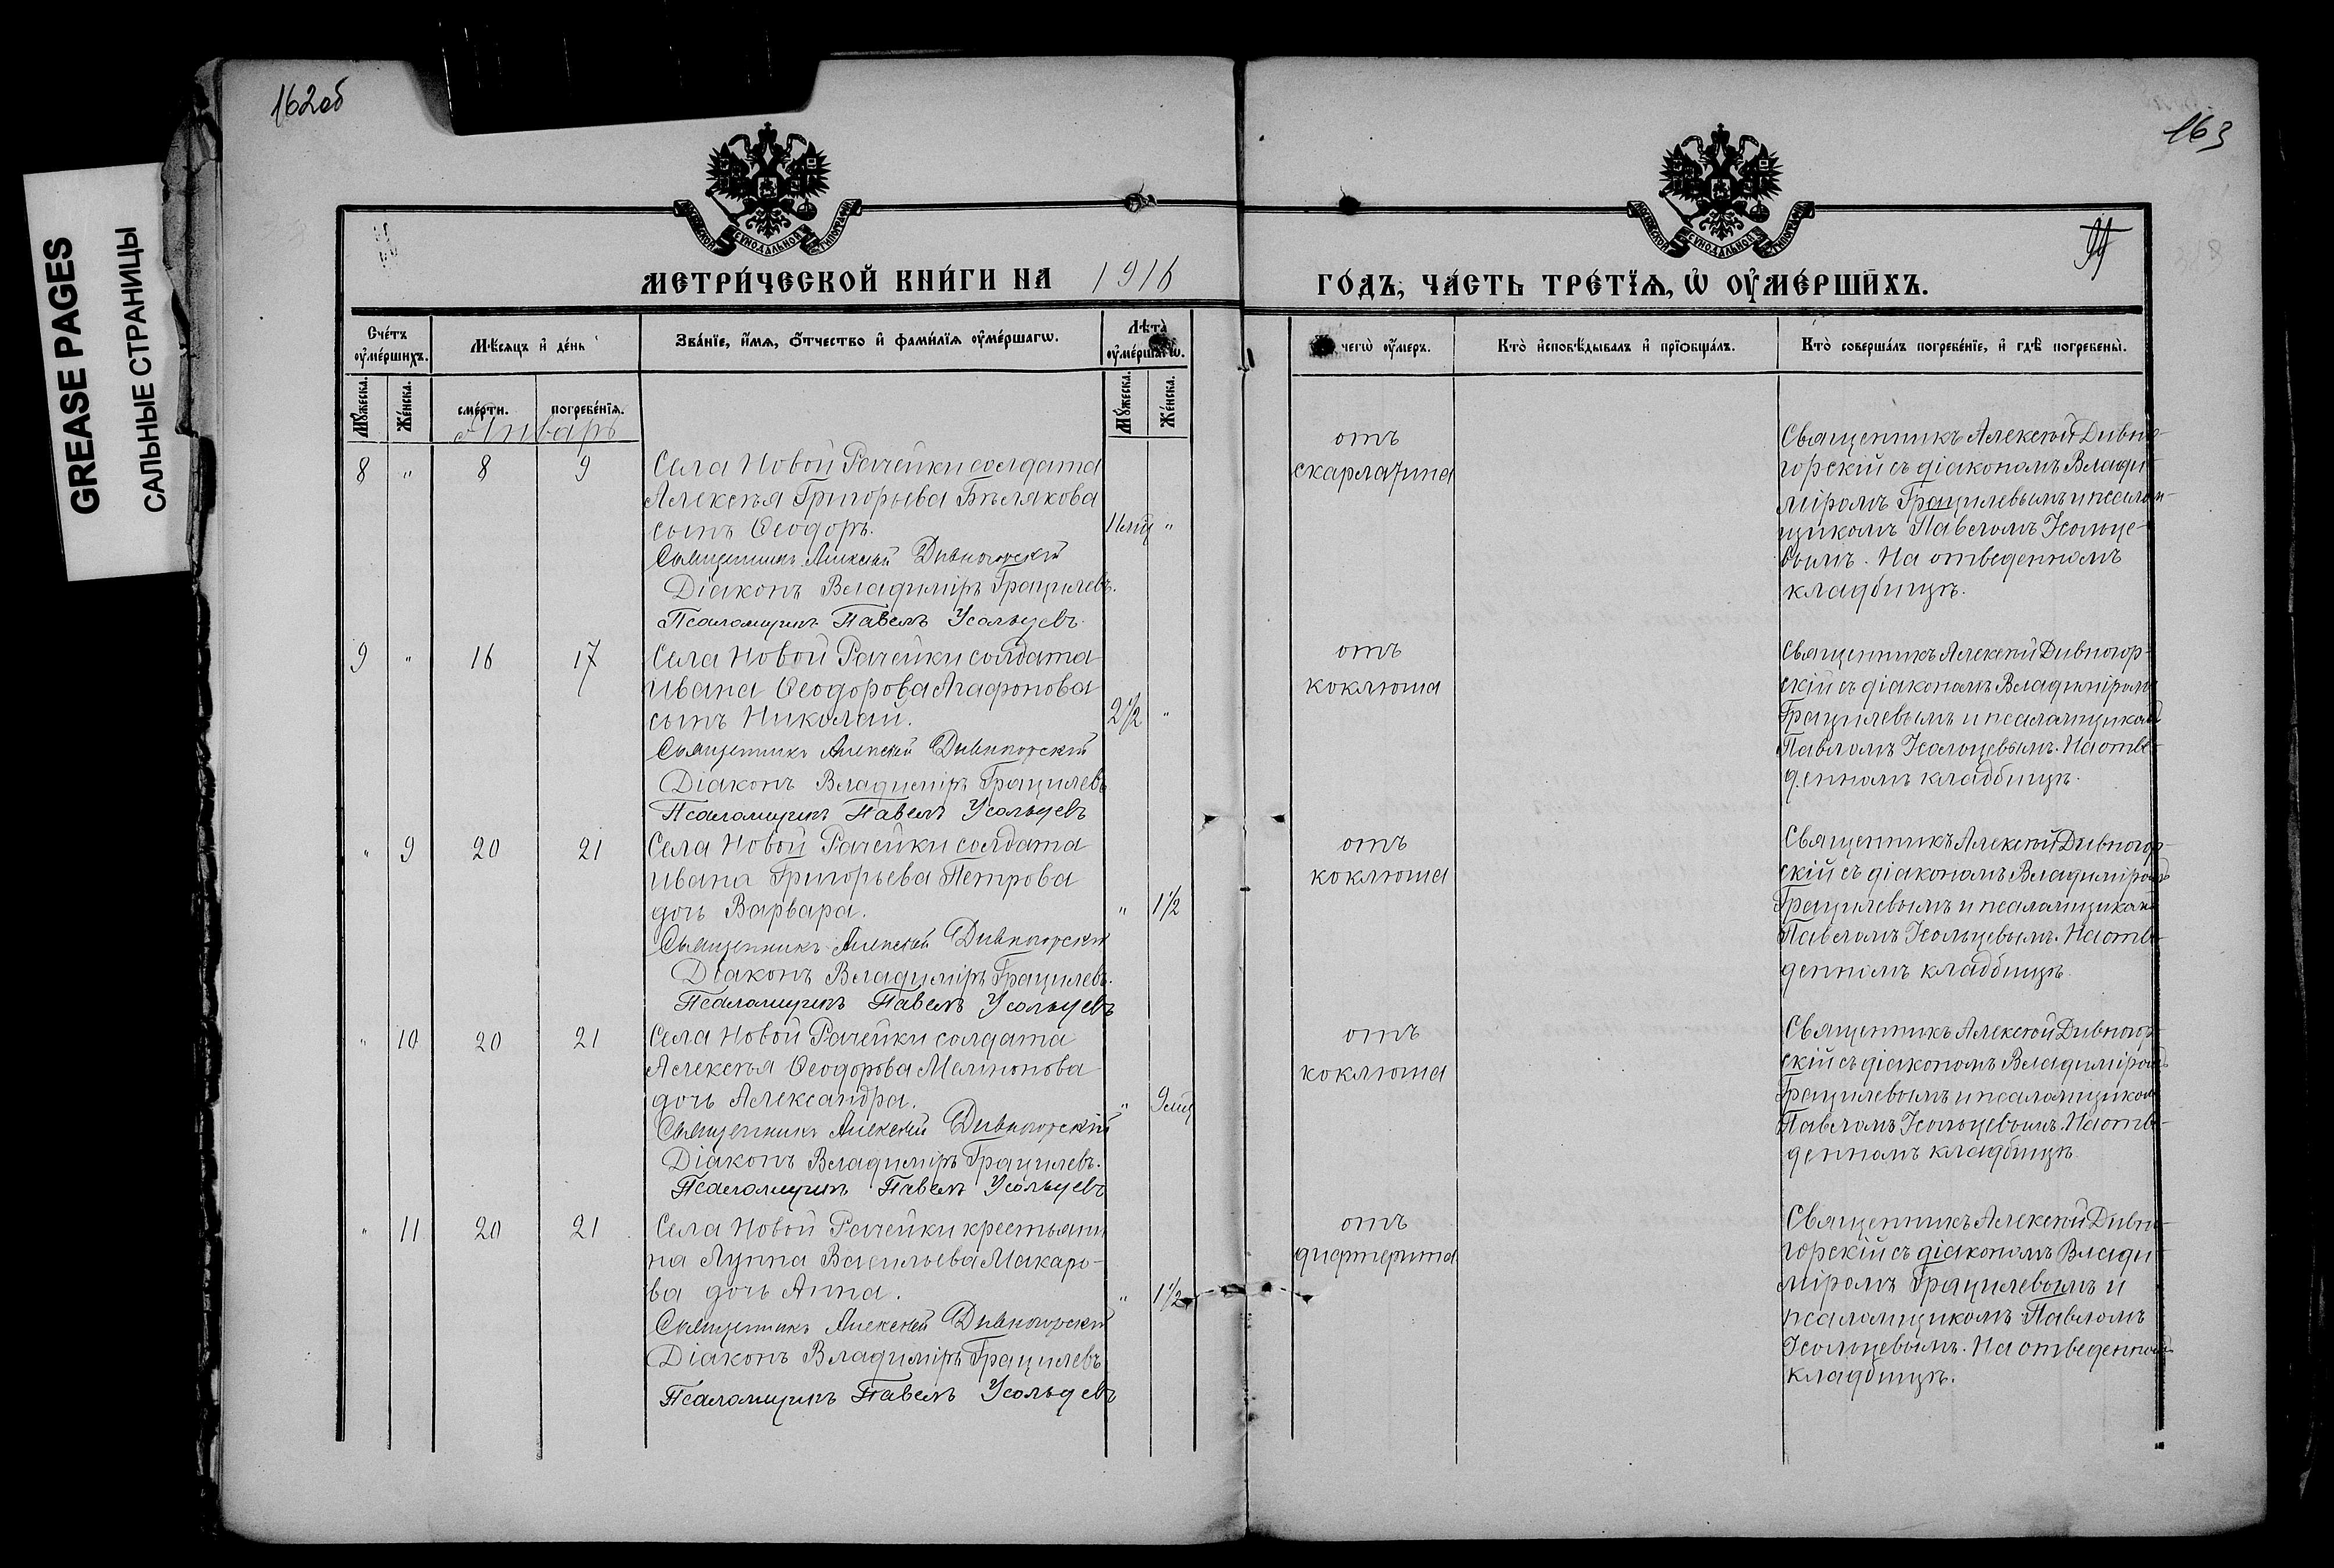 162 об
163
GREASE PAGES
САЛЬНЫЕ СТРАНИЦЫ
МЕТРИ́ЧЕСКОЙ КНИ́ГИ НА 1916
ГО́ДЪ, ЧА́СТЬ ТРЕ́ТЇѦ, Ѡ҆ ОУ҆МЕ́РШИХЪ.
Сче́тъ оу҆ме́ршихъ.
Мѣ́сяцъ и҆ де́нь
Зва́нїе, и҆́мѧ, ѻ҆́тчество и҆ фами́лїѧ оу҆ме́ршагѡ.
Лѣ́та оу҆ме́ршагѡ.
чегѡ̀ оу҆́меръ.
Кто̀ и҆сповѣ́дывалъ и҆ прїѡбща́лъ.
Кто̀ соверша́лъ погребе́нїе, и҆ гдѣ̀ погребены̀.
Мꙋ́жеска.
Же́нска.
сме́рти.
погребе́нїѧ.
Мꙋ́жеска.
Же́нска.
Январь
8 " 8 9
Села Новой Рачейки солдата
Алексѣя Григорьева Бѣлякова
сынъ Ѳеодоръ.
11 мц "
Священникъ Алексѣй Дивногорскій
Діаконъ Владиміръ Грацилевъ.
Псаломщикъ Павелъ Усольцевъ.
отъ
скарлатина
Священникъ Алексѣй Дивно-
горскій съ діакономъ Влади-
міромъ Грацилевымъ и псалом-
щикомъ Павломъ Усольце-
вымъ. На отведенномъ
кладбищѣ.
9 " 16 17
Села Новой Рачейки солдата
Ивана Ѳеодорова Агафонова
сынъ Николай.
2 1/2 "
Священникъ Алексѣй Дивногорскій
Діаконъ Владиміръ Грацилевъ
Псаломщикъ Павелъ Усольцевъ
отъ
коклюша
Священникъ Алексѣй Дивногор-
скій съ діакономъ Владиміромъ
Грацилевымъ и псаломщикомъ
Павломъ Усольцевымъ. На отве-
денномъ кладбищѣ.
" 9 20 21
Села Новой Рачейки солдата
Ивана Григорьева Петрова
дочь Варвара.
" 1 1/2
Священникъ Алексѣй Дивногорскій
Діаконъ Владиміръ Грацилевъ.
Псаломщикъ Павелъ Усольцевъ
отъ
коклюша
Священникъ Алексѣй Дивногор-
скій съ діакономъ Владиміромъ
Грацилевымъ и псаломщикомъ
Павломъ Усольцевымъ. На отве-
денномъ кладбищѣ.
" 10 20 21
Села Новой Рачейки солдата
Алексѣя Ѳеодорова
дочь Александра.
" 9 мц
Священникъ Алексѣй Дивногорскій
Діаконъ Владиміръ Грацилевъ.
Псаломщикъ Павелъ Усольцевъ
отъ
коклюша
Священникъ Алексѣй Дивногор-
скій съ діакономъ Владиміромъ
Грацилевымъ и псаломщикомъ
Павломъ Усольцевымъ. На отве-
денномъ кладбищѣ.
" 11 20 21
Села Новой Рачейки крестьяни-
на Луппа Васильева Макаро-
ва дочь Анна.
" 1 1/2
Священникъ Алексѣй Дивногорскій
Діаконъ Владиміръ Грацилевъ
Псаломщикъ Павелъ Усольцевъ
отъ
дифтерита
Священникъ Алексѣй Дивно-
горскій съ діакономъ Влади-
міромъ Грацилевымъ и
псаломщикомъ Павломъ
Усольцевымъ. На отведенномъ
кладбищѣ.